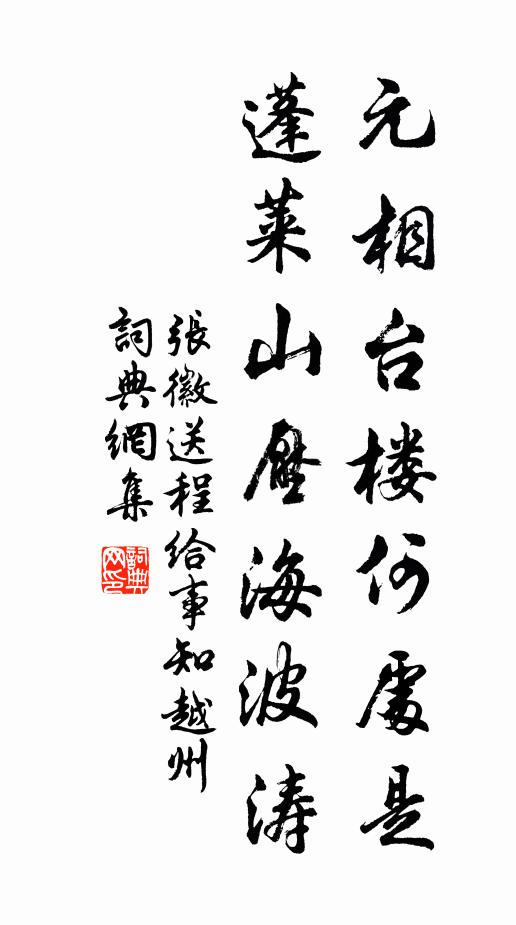 元相台楼何處是
蓬莱山壓海波涛
張徽送程给事知越州
詞典網集
詞典网印